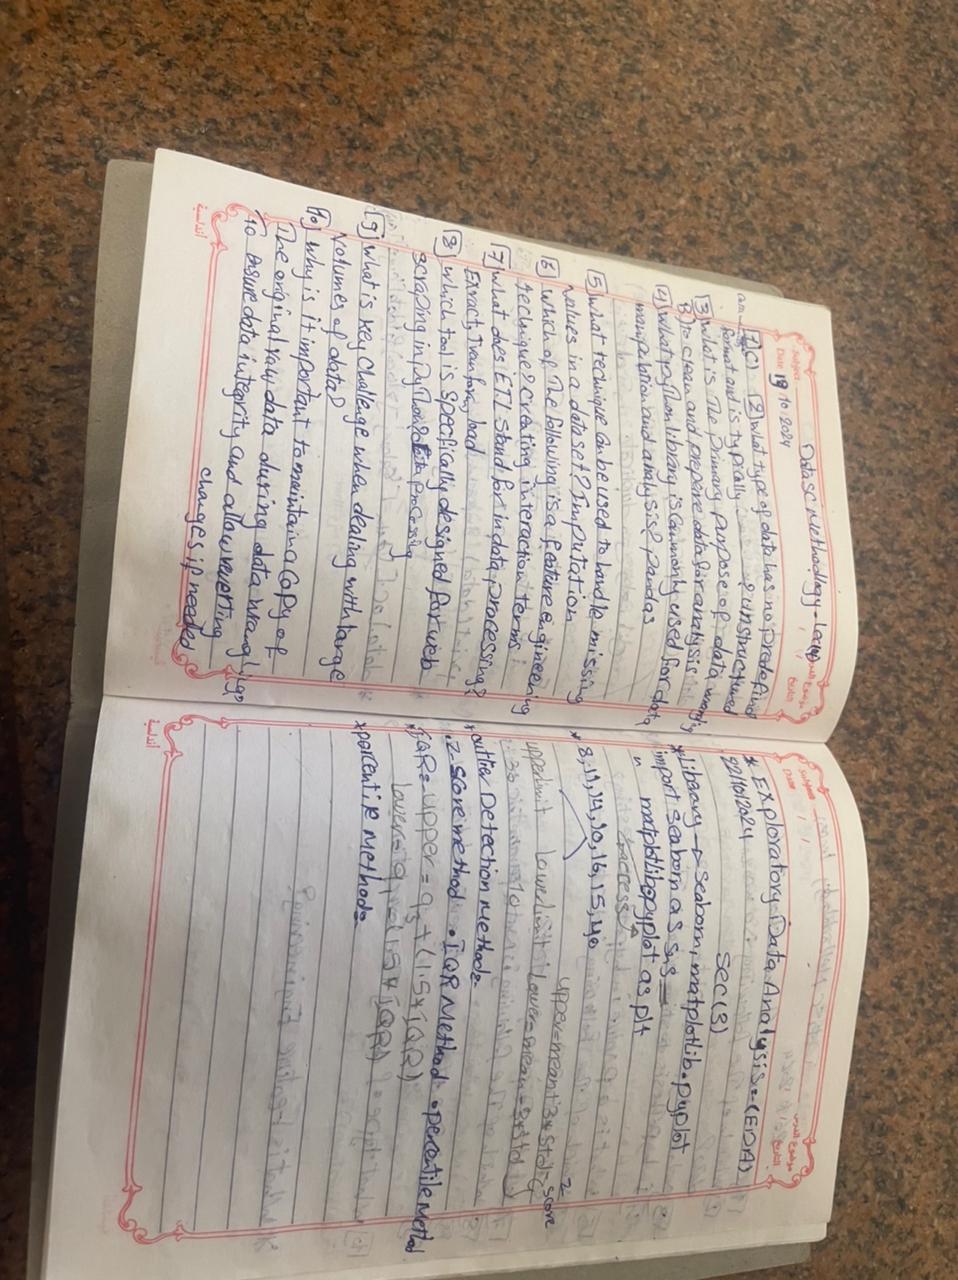 Subject
Datasc Methodllogy - Lec(4)
موضوع الدرس
Date 19/10/2024
التاريخ
[1] C) [2] what type of data has no predefind
format and is typically ? unstructured
[3] what is The primary purpose of data wrangling
B) to clean and prepare data for analysis
[4] what python library is commonly used for data
manipulation and analysis? pandas
[5] what technique can be used to handle missing
values in a dataset? Imputation
[6] which of The following is a feature engineering
technique? creating interaction terms
[7] what does ETL stand for in data processing?
Exract, Tranform, load
[8] which tool is specifically designed for web
scraping in python? data processing
[9] what is key challenge when dealing with large
volumes of data?
[10] why is it important to maintain a copy of
The original raw data during data wrangling?
To ensure data integrity and allow reverting
changes if needed
أندلسية
Subject
موضوع الدرس
Date / /
التاريخ
* Exploratory Data Analysis:-(EDA)
22/10/2024
sec(3)
*Library → seaborn, matplotlib.pyplot
import seaborn as sns
" matplotlib.pyplot as plt
access
* 8, 11, 14, 10, 16, 15, 40
upper=mean+3*std z-score
upperlimit Lowerlimit Lower=mean-3*std
10
* outlier Detection Methods:-
. Z-score method . IQR Method . percentile Method
*IQR:- upper = q3 + (1.5*IQR)
Lower= q1 - (1.5*IQR)
*percentile Method:-
أندلسية